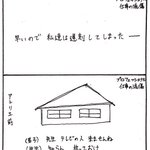 プロフェッショナル
仕事の流儀
早いので 私達は遅刻してしまった ――
プロフェッショナル
仕事の流儀
アトリエ前
先生 テレビの人 来ませんね
知らん 放っておけ